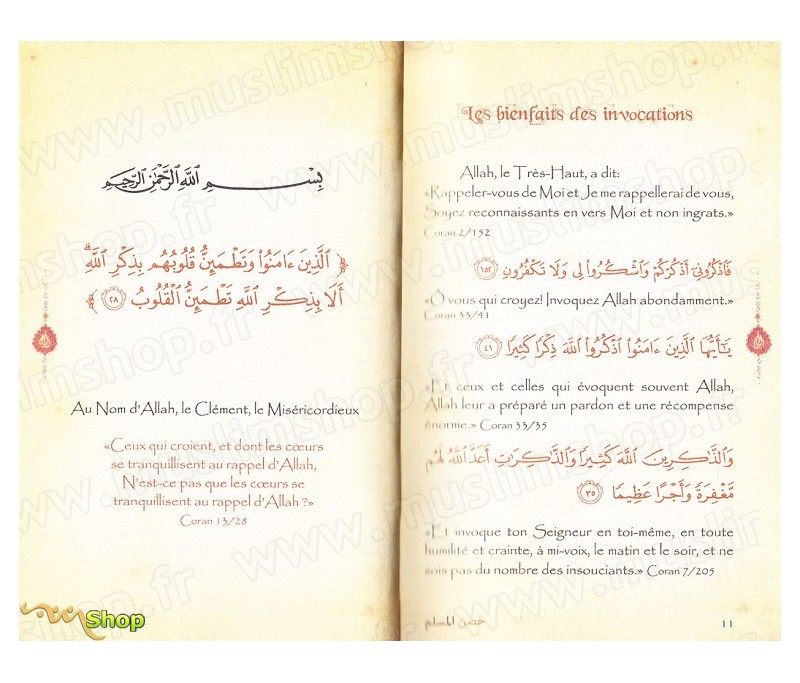 بِسْــــمِ ٱللَّهِ ٱلرَّحْمَٰنِ ٱلرَّحِيمِ
﴿ ٱلَّذِينَ ءَامَنُوا۟ وَتَطْمَئِنُّ قُلُوبُهُم بِذِكْرِ ٱللَّهِ ۗ
أَلَا بِذِكْرِ ٱللَّهِ تَطْمَئِنُّ ٱلْقُلُوبُ ٢٨ ﴾
Au Nom d'Allah, le Clément, le Miséricordieux
«Ceux qui croient, et dont les cœurs
se tranquillisent au rappel d'Allah,
N'est-ce pas que les cœurs se
tranquillisent au rappel d'Allah ?»
Coran 13/28
Shop
Les bienfaits des invocations
Allah, le Très-Haut, a dit:
«Rappeler-vous de Moi et Je me rappellerai de vous,
Soyez reconnaissants en vers Moi et non ingrats.»
Coran 2/152
فَٱذْكُرُونِىٓ أَذْكُرْكُمْ وَٱشْكُرُوا۟ لِى وَلَا تَكْفُرُونِ ١٥٢
«Ô vous qui croyez! Invoquez Allah abondamment.»
Coran 33/41
يَـٰٓأَيُّهَا ٱلَّذِينَ ءَامَنُوا۟ ٱذْكُرُوا۟ ٱللَّهَ ذِكْرًا كَثِيرًا ٤١
«Et ceux et celles qui évoquent souvent Allah,
Allah leur a préparé un pardon et une récompense
énorme.» Coran 33/35
وَٱلذَّٰكِرِينَ ٱللَّهَ كَثِيرًا وَٱلذَّٰكِرَٰتِ أَعَدَّ ٱللَّهُ لَهُم
مَّغْفِرَةً وَأَجْرًا عَظِيمًا ٣٥
«Et invoque ton Seigneur en toi-même, en toute
humilité et crainte, à mi-voix, le matin et le soir, et ne
sois pas du nombre des insouciants.» Coran 7/205
حصن المسلم
11
www.muslimshop.fr